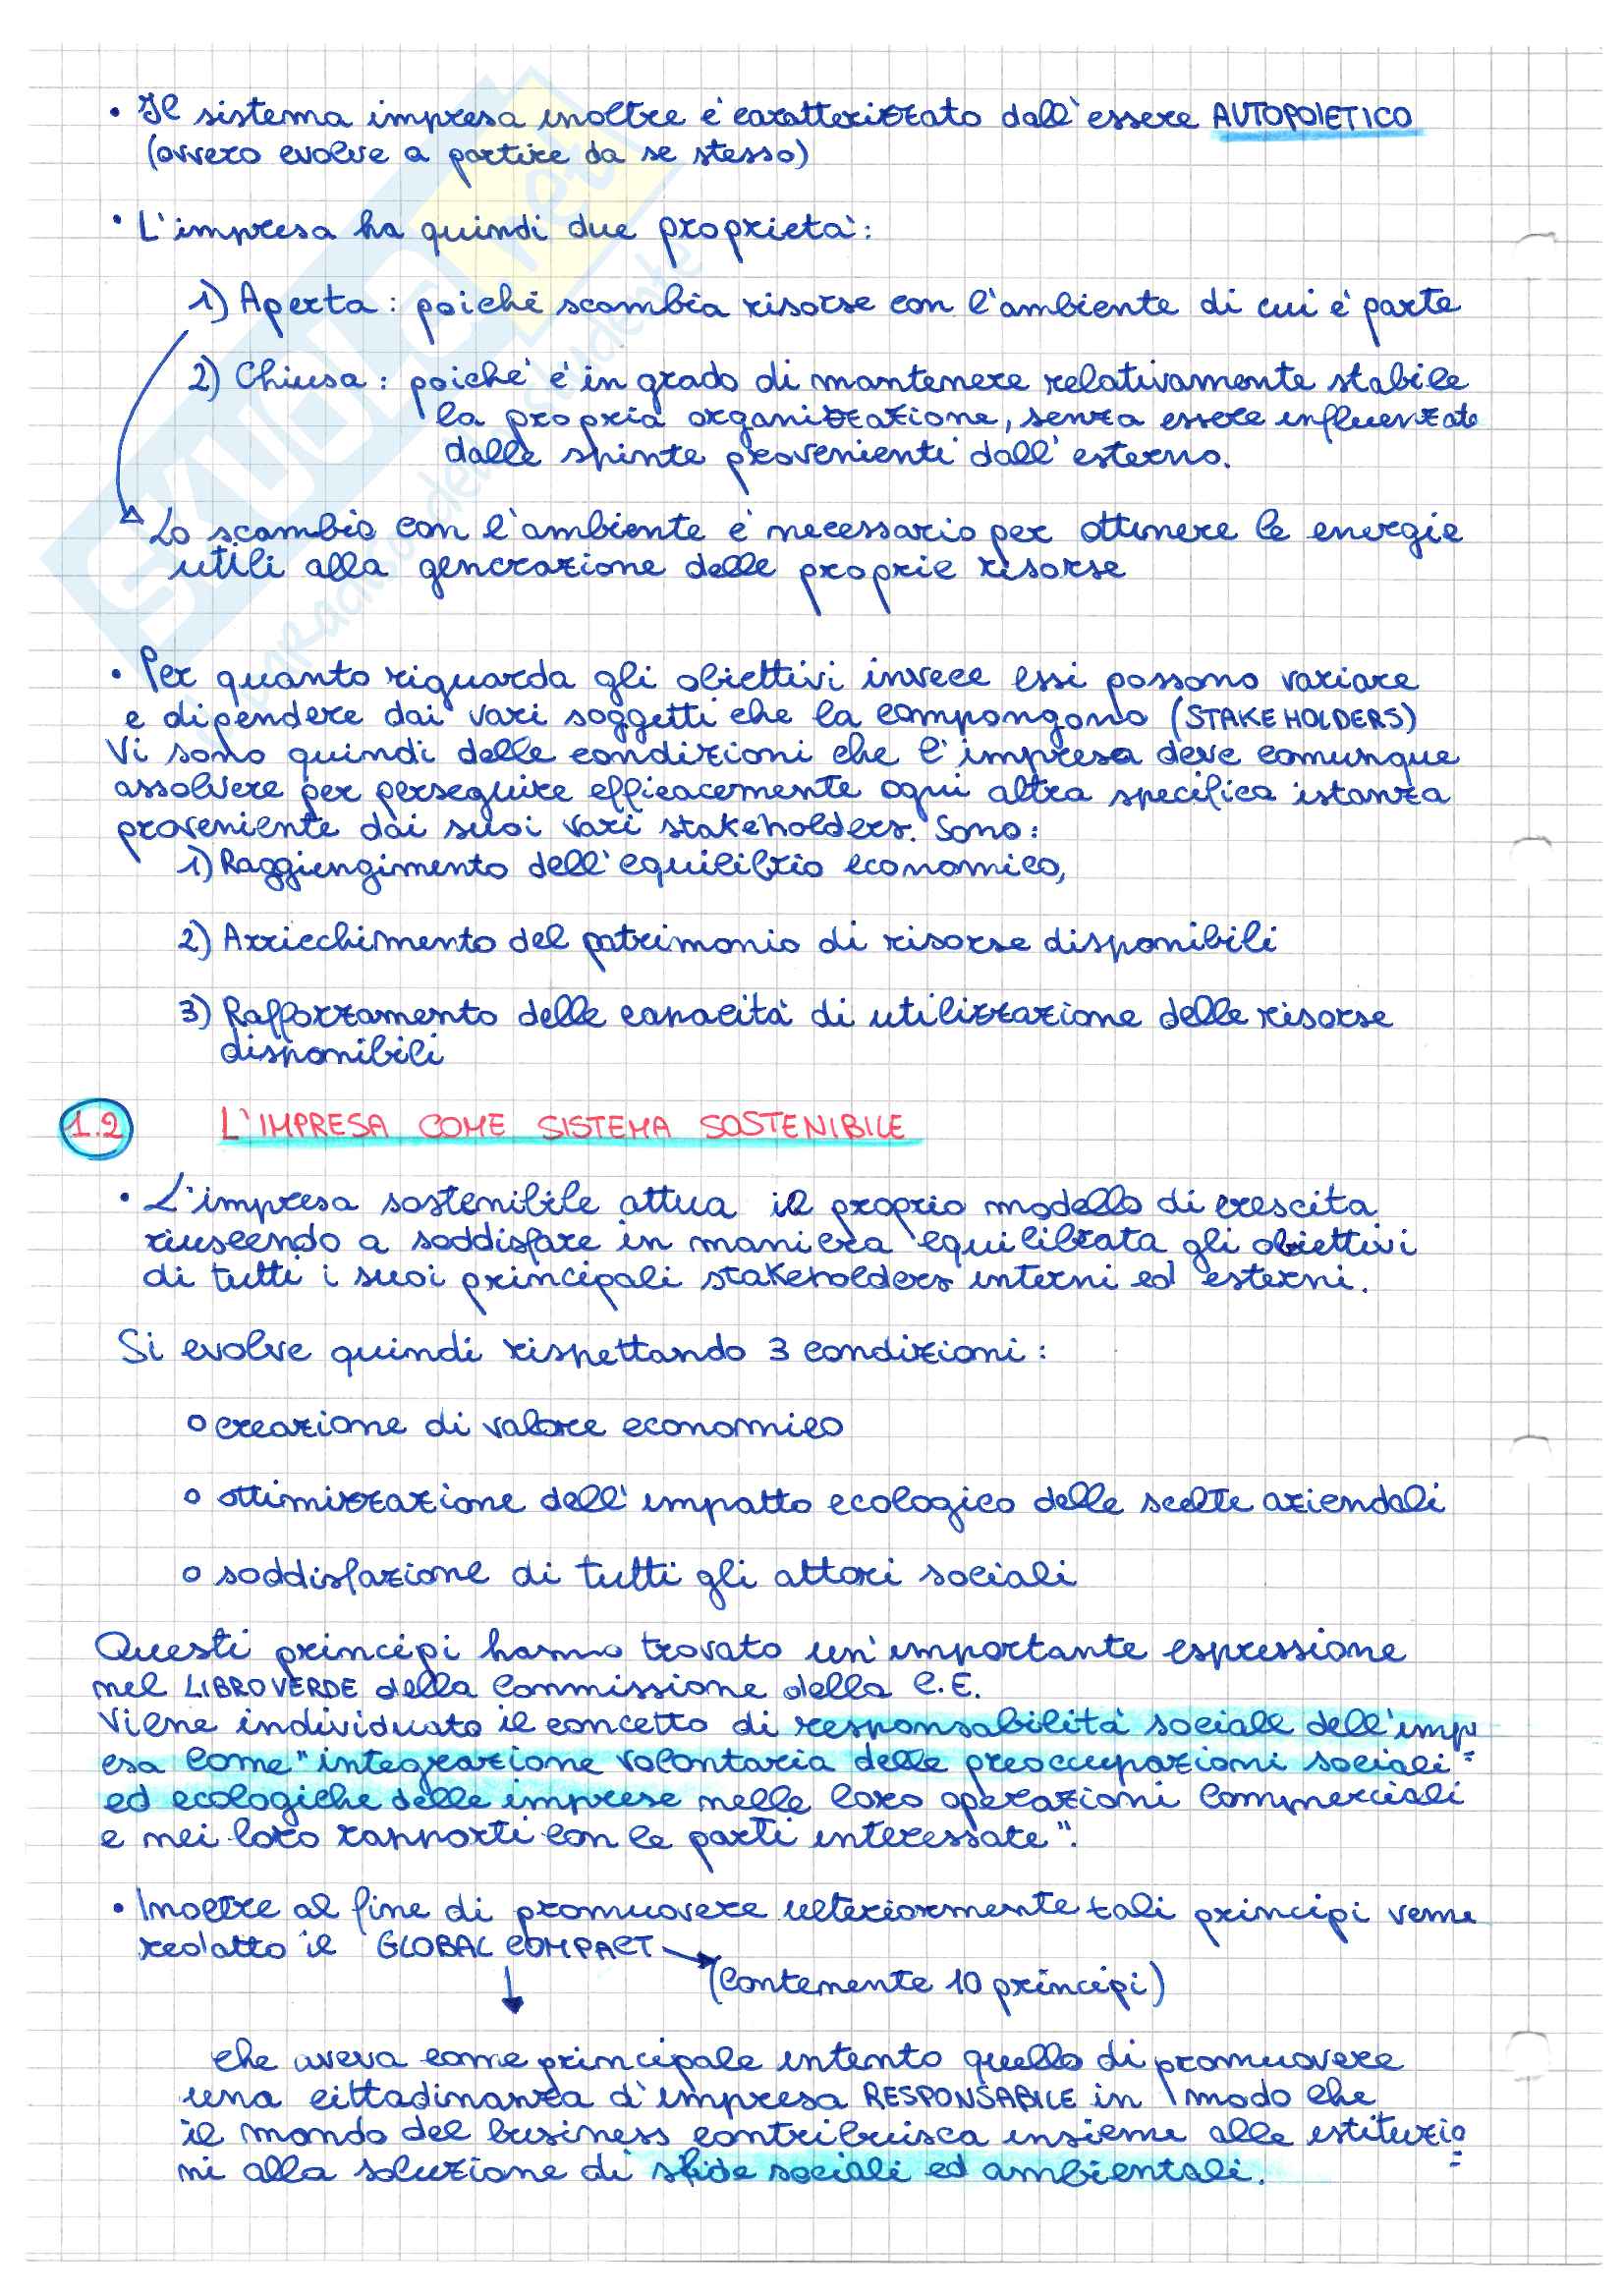 • Il sistema impresa inoltre è caratterizzato dall'essere AUTOPOIETICO
(ovvero evolve a partire da se stesso)
• L'impresa ha quindi due proprietà:
1) Aperta: poiché scambia risorse con l'ambiente di cui è parte
2) Chiusa: poiché è in grado di mantenere relativamente stabile
la propria organizzazione, senza essere influenzata
dalle spinte provenienti dall'esterno.
Lo scambio con l'ambiente è necessario per ottenere le energie
utili alla generazione delle proprie risorse
• Per quanto riguarda gli obiettivi invece essi possono variare
e dipendere dai vari soggetti che la compongono (STAKEHOLDERS)
Vi sono quindi delle condizioni che l'impresa deve comunque
assolvere per perseguire efficacemente ogni altra specifica istanza
proveniente dai suoi vari stakeholders. Sono:
1) Raggiungimento dell'equilibrio economico,
2) Arricchimento del patrimonio di risorse disponibili
3) Rafforzamento delle capacità di utilizzazione delle risorse
disponibili
1.2 L'IMPRESA COME SISTEMA SOSTENIBILE
• L'impresa sostenibile attua il proprio modello di crescita
riuscendo a soddisfare in maniera equilibrata gli obiettivi
di tutti i suoi principali stakeholders interni ed esterni.
Si evolve quindi rispettando 3 condizioni:
o creazione di valore economico
o ottimizzazione dell'impatto ecologico delle scelte aziendali
o soddisfazione di tutti gli attori sociali
Questi principi hanno trovato un'importante espressione
nel LIBRO VERDE della Commissione della C.E.
Viene individuato il concetto di responsabilità sociale dell'impr
esa come "integrazione volontaria delle preoccupazioni sociali
ed ecologiche delle imprese nelle loro operazioni commerciali
e nei loro rapporti con le parti interessate".
• Inoltre al fine di promuovere ulteriormente tali principi venne
redatto il GLOBAL COMPACT
(contenente 10 principi)
che aveva come principale intento quello di promuovere
una cittadinanza d'impresa RESPONSABILE in modo che
il mondo del business contribuisca insieme alle istituzio
ni alla soluzione di sfide sociali ed ambientali.